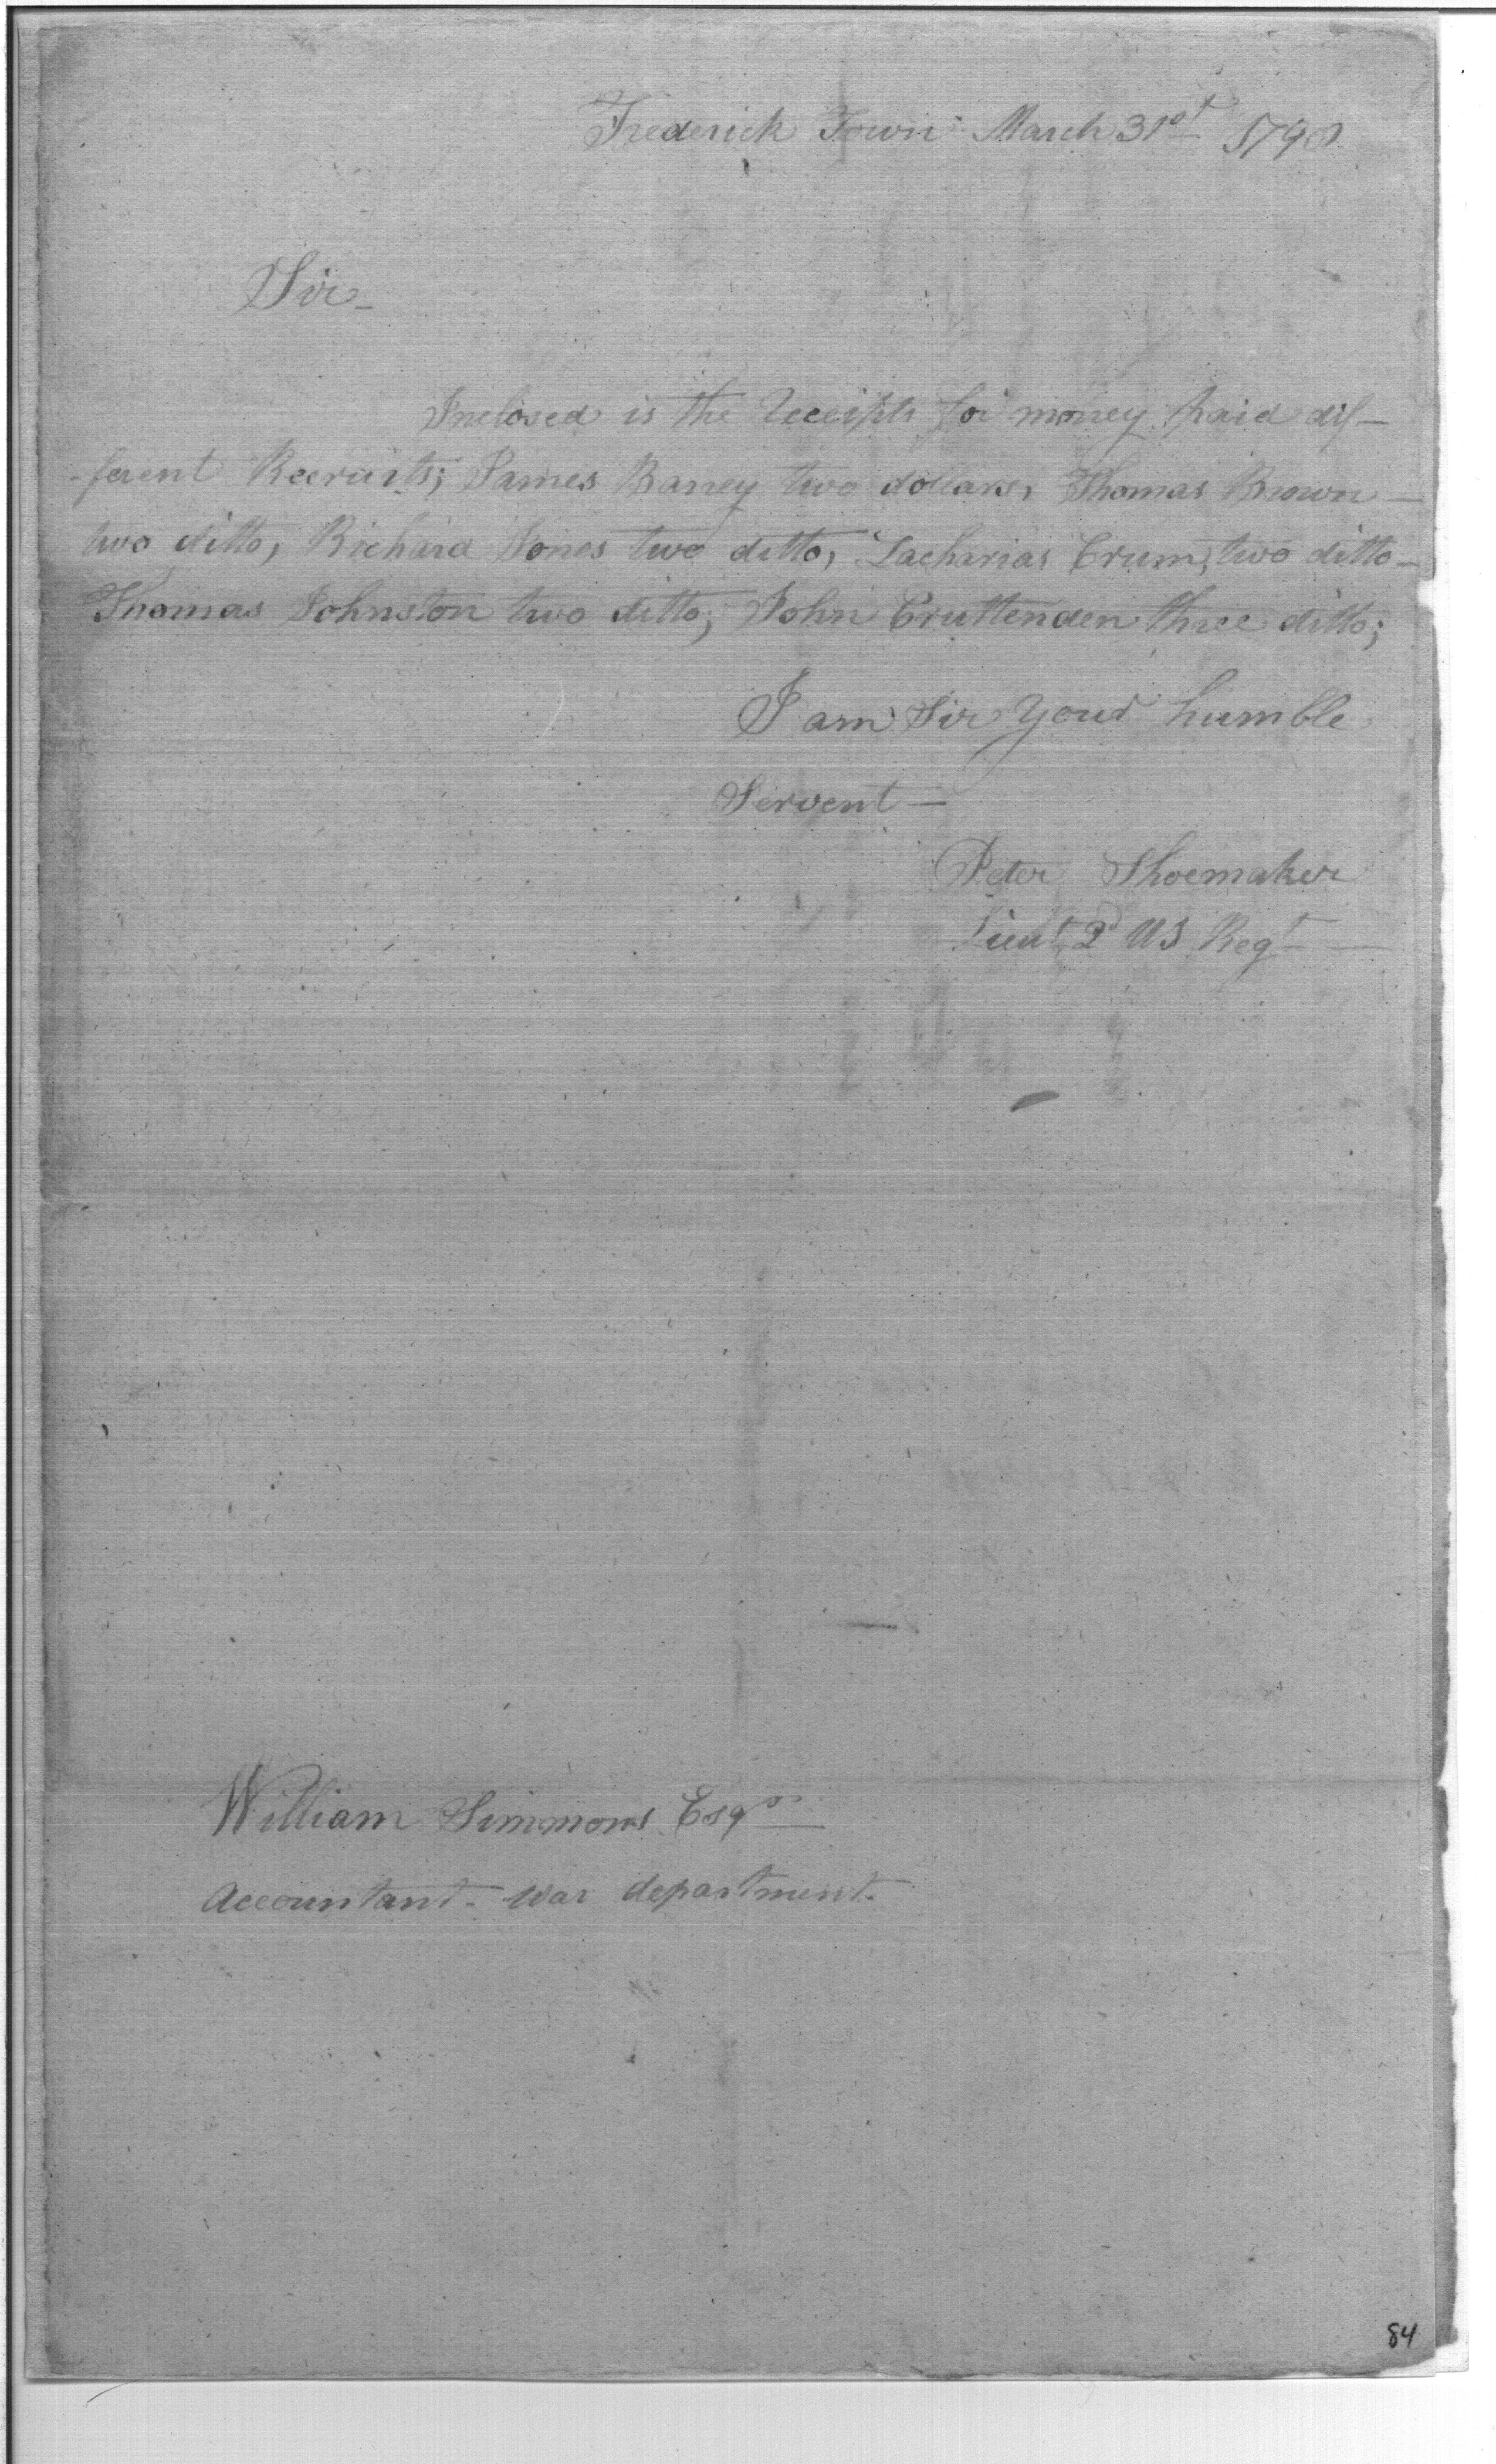 Frederick Town March 31st 1798
Sir_
Inclosed is the Receipts for money paid dif-
-ferent Recruits; James Barrey two dollars, Thomas Brown -
two ditto, Richard Jones two ditto, Zacharias Crum, two ditto -
Thomas Johnston two ditto; John Cruttenden three ditto;
I am Sir your humble
Servent -
Peter Shoemaker
Lieut 2d US Regt -
William Simmons Esqr
Accountant - war department.
84